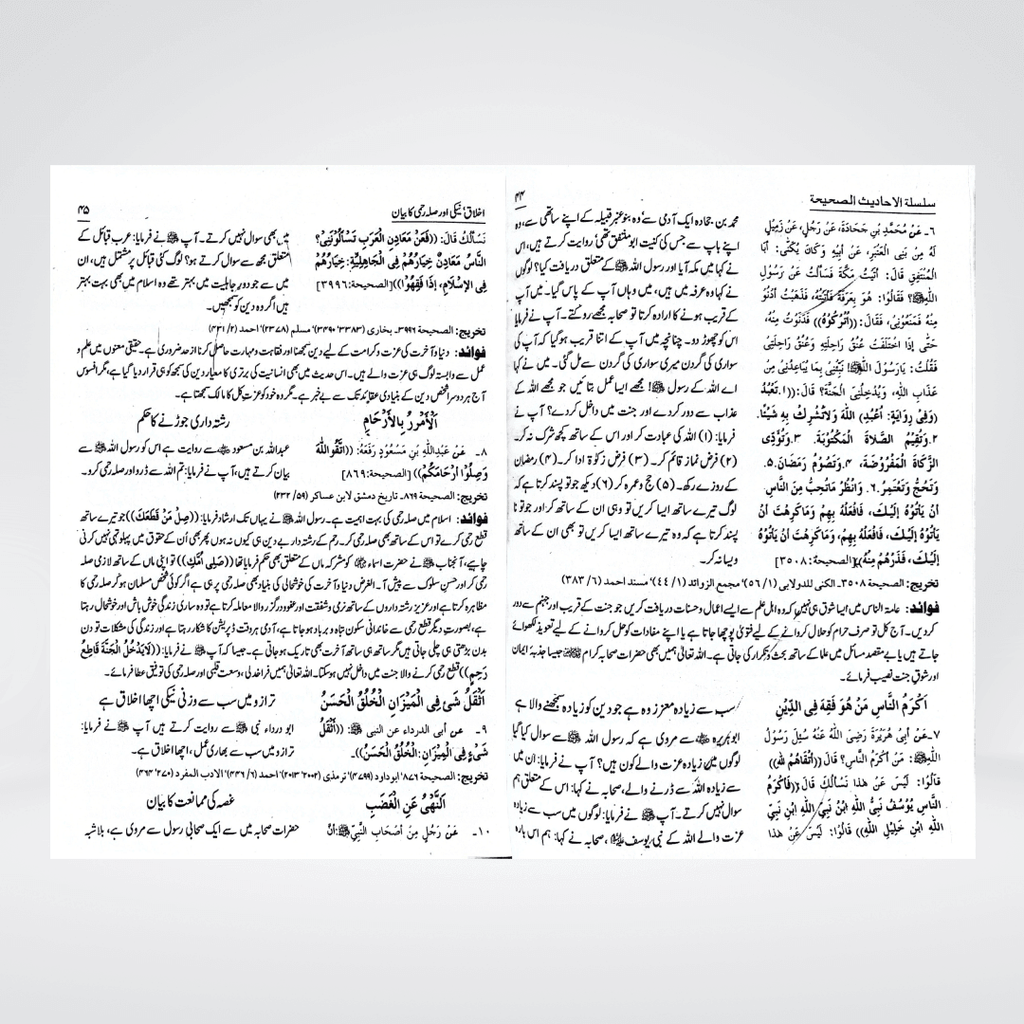 سلسلة الاحاديث الصحيحة
۴۴
٦۔ عَنْ مُحَمَّدِ بْنِ جَحَادَةَ، عَنْ رَجُلٍ، عَنْ زَمِيْلٍ
لَهُ مِنْ بَنِى الْعَنْبَرِ، عَنْ أَبِيْهِ وَكَانَ يُكَنّٰى: أَبَا
الْمُنْتَفِقِ قَالَ: أَتَيْتُ مَكَّةَ فَسَأَلْتُ عَنْ رَسُوْلِ
اللهِ ﷺ؟ فَقَالُوْا: هُوَ بِعَرَفَةَ فَأَتَيْتُهُ، فَذَهَبْتُ أَدْنُوْ
مِنْهُ فَمَنَعُوْنِى، فَقَالَ: ((أُتْرُكُوْهُ)) فَدَنَوْتُ مِنْهُ،
حَتّٰى إِذَا اخْتَلَفَتْ عُنُقُ رَاحِلَتِهٖ وَعُنُقُ رَاحِلَتِى
فَقُلْتُ: يَارَسُوْلَ اللهِ ﷺ! نَبِّئْنِى بِمَا يُبَاعِدُنِىْ مِنْ
عَذَابِ اللهِ، وَيُدْخِلُنِى الْجَنَّةَ؟ قَالَ: ((۱۔تَعْبُدُ
(وَفِىْ رِوَايَةٍ: أُعْبُدِ) اللهَ وَلَاتُشْرِكُ بِهٖ شَيْئًا.
۲۔وَتُقِيْمُ الصَّلَاةَ الْمَكْتُوْبَةَ. ۳۔وَتُؤَدِّى
الزَّكَاةَ الْمَفْرُوْضَةَ، ۴۔وَتَصُوْمُ رَمَضَانَ. ۵۔
وَتَحُجُّ وَتَعْتَمِرُ. ۶۔ وَانْظُرْ مَاتُحِبُّ مِنَ النَّاسِ
أَنْ يَأْتُوْهُ إِلَيْكَ، فَافْعَلْهُ بِهِمْ وَمَاكَرِهْتَ أَنْ
يَأْتُوْهُ إِلَيْكَ، فَافْعَلْهُ بِهِمْ، وَمَاكَرِهْتَ أَنْ يَأْتُوْهُ
إِلَيْكَ، فَذَرْهُمْ مِنْهُ))[الصحيحة:۳۵۰۸]
محمد بن جحادہ ایک آدمی سے، وہ بنو عنبر قبیلہ کے اپنے ساتھی سے، وہ
اپنے باپ سے جس کی کنیت ابو منتفق تھی، روایت کرتے ہیں، اس
نے کہا میں مکہ آیا اور رسول اللہ ﷺ کے متعلق دریافت کیا؟ لوگوں
نے کہا وہ عرفہ میں ہیں، میں وہاں آپ کے پاس گیا۔ میں آپ
کے قریب ہونے کا ارادہ کرتا تو صحابہ مجھے روکتے۔ آپ نے فرمایا
اس کو چھوڑ دو۔ چنانچہ میں آپ کے اتنا قریب ہو گیا کہ آپ کی
سواری کی گردن میری سواری کی گردن سے مل گئی۔ میں نے کہا
اے اللہ کے رسول ﷺ! مجھے ایسا عمل بتائیں جو مجھے اللہ کے
عذاب سے دور کر دے اور جنت میں داخل کر دے؟ آپ نے
فرمایا: (۱) اللہ کی عبادت کر اور اس کے ساتھ کچھ شرک نہ کر۔
(۲) فرض نماز قائم کر۔ (۳) فرض زکوٰۃ ادا کر۔ (۴) رمضان
کے روزے رکھ۔ (۵) حج و عمرہ کر (۶) دیکھ جو تو پسند کرتا ہے کہ
لوگ تیرے ساتھ ایسا کریں تو وہی ان کے ساتھ کر اور جو تو نا
پسند کرتا ہے کہ وہ تیرے ساتھ ایسا کریں تو بھی ان کے ساتھ
ویسا نہ کر۔
تخریج: الصحیحة ۳۵۰۸۔ الکنی للدولابی (۱/ ۵۶)، مجمع الزوائد (۱/ ۴۴)، مسند احمد (۶/ ۳۸۳)
فوائد: عامۃ الناس میں ایسا شوق ہی نہیں کہ وہ اہل علم سے ایسے اعمال و حسنات دریافت کریں جو جنت کے قریب اور جہنم سے دور
کر دیں۔ آج کل تو صرف حرام کو حلال کروانے کے لیے فتویٰ پوچھا جاتا ہے یا اپنے مفادات کو حل کروانے کے لیے تعویذ لکھوائے
جاتے ہیں یا بے مقصد مسائل میں علما کے ساتھ بحث و تکرار کی جاتی ہے۔ اللہ تعالیٰ ہمیں بھی حضرات صحابہ کرام جیسا جذبہ ایمان
اور شوق جنت نصیب فرمائے۔
اَكْرَمُ النَّاسِ مَنْ هُوَ فَقِهَ فِى الدِّيْنِ
سب سے زیادہ معزز وہ ہے جو دین کو زیادہ سمجھنے والا ہے
۷۔عَنْ أَبِىْ هُرَيْرَةَ رَضِىَ اللهُ عَنْهُ سُئِلَ رَسُوْلُ
اللهِ ﷺ: مَنْ أَكْرَمُ النَّاسِ؟ قَالَ ((أَتْقَاهُمْ لِلهِ))
قَالُوْا: لَيْسَ عَنْ هٰذَا نَسْأَلُكَ قَالَ ((فَأَكْرَمُ
النَّاسِ يُوْسُفُ نَبِىُّ اللهِ ابْنُ نَبِىِّ اللهِ ابْنِ نَبِىِّ
اللهِ ابْنِ خَلِيْلِ اللهِ)) قَالُوْا: لَيْسَ عَنْ هٰذَا
ابو ہریرہ سے مروی ہے کہ رسول اللہ ﷺ سے سوال کیا گیا
لوگوں میں زیادہ عزت والے کون ہیں؟ آپ نے فرمایا: ان میں
سے زیادہ اللہ سے ڈرنے والے، صحابہ نے کہا: اس کے متعلق ہم
سوال نہیں کرتے۔ آپ نے فرمایا: لوگوں میں سب سے زیادہ
عزت والے اللہ کے نبی یوسف ہیں، صحابہ نے کہا: ہم اس بارہ
اخلاق، نیکی اور صلہ رحمی کا بیان
۴۵
نَسْأَلُكَ قَالَ: ((فَعَنْ مَعَادِنِ الْعَرَبِ تَسْأَلُوْنِىْ؟
النَّاسُ مَعَادِنُ خِيَارُهُمْ فِى الْجَاهِلِيَّةِ: خِيَارُهُمْ
فِى الْإِسْلَامِ، إِذَا فَقِهُوْا)) [الصحيحة:۳۹۹۶]
میں بھی سوال نہیں کرتے۔ آپ ﷺ نے فرمایا: عرب قبائل کے
متعلق مجھ سے سوال کرتے ہو؟ لوگ کئی قبائل پر مشتمل ہیں، ان
میں سے جو دور جاہلیت میں بہتر تھے وہ اسلام میں بھی بہت بہتر
ہیں اگر وہ دین کو سمجھیں۔
تخریج: الصحیحة ۳۹۹۶۔ بخاری (۳۳۸۳، ۳۴۹۰)، مسلم (۲۳۷۸)، احمد (۲/ ۴۳۱)
فوائد: دنیا و آخرت کی عزت و کرامت کے لیے دین سمجھنا اور فقاہت و مہارت حاصل کرنا از حد ضروری ہے۔ حقیقی معنوں میں علم و
عمل سے وابستہ لوگ ہی عزت والے ہیں۔ اس حدیث میں بھی انسانیت کی برتری کا معیار دین کی سمجھ کو ہی قرار دیا گیا ہے، مگر افسوس
آج ہر دوسرا شخص دین کے بنیادی عقائد تک سے بے خبر ہے۔ مگر وہ خود کو عزت کل کا مالک سمجھتا ہے۔
اَلْأَمْرُ بِالْأَرْحَامِ
رشتہ داری جوڑنے کا حکم
۸۔ عَنْ عَبْدِاللهِ بْنِ مَسْعُوْدٍ رَفَعَهُ: ((اتَّقُوا اللهَ
وَصِلُوْا أَرْحَامَكُمْ)) [الصحيحة:۸۶۹]
عبداللہ بن مسعود سے روایت ہے اس کو رسول اللہ ﷺ سے
بیان کرتے ہیں، آپ نے فرمایا: تم اللہ سے ڈرو اور صلہ رحمی کرو۔
تخریج: الصحیحة ۸۶۹۔ تاریخ دمشق لابن عساکر (۵۹/ ۲۳۲)
فوائد: اسلام میں صلہ رحمی کی بہت اہمیت ہے۔ رسول اللہ ﷺ نے یہاں تک ارشاد فرمایا: ((صِلْ مَنْ قَطَعَكَ)) جو تیرے ساتھ
قطع رحمی کرے تو اس کے ساتھ بھی صلہ رحمی کر۔ رحم کے رشتہ دار بے دین ہی کیوں نہ ہوں پھر بھی اُن کے حقوق میں پہلو تہی نہیں کرنی
چاہیے، آنجناب ﷺ نے حضرت اسماء کو مشرکہ ماں کے متعلق بھی حکم فرمایا تھا ((صَلِىْ أُمَّكِ)) تو اپنی ماں کے ساتھ لازمی صلہ
رحمی کر اور حسن سلوک سے پیش آ۔ الغرض دنیا و آخرت کی خوشحالی کی بنیاد بھی صلہ رحمی پر ہی ہے اگر کوئی شخص مسلمان ہو کر صلہ رحمی کا
مظاہرہ کرتا ہے اور عزیز رشتہ داروں کے ساتھ نرمی و شفقت اور عفو و درگزر والا معاملہ کرتا ہے، تو وہ ساری زندگی خوش باش اور خوشحال رہتا
ہے، بصورت دیگر قطع رحمی سے خاندانی سکون تباہ و برباد ہو جاتا ہے، آدمی ہر وقت ڈپریشن کا شکار رہتا ہے اور زندگی کی مشکلات تو دن
بدن بڑھتی ہی چلی جاتی ہیں مگر ساتھ ہی ساتھ آخرت بھی تاریک ہو جاتی ہے۔ جیسا کہ آپ ﷺ نے فرمایا: ((لَايَدْخُلُ الْجَنَّةَ قَاطِعُ
رَحِمٍ)) قطع رحمی کرنے والا جنت میں داخل نہیں ہو سکتا۔ اللہ تعالیٰ ہمیں فراخدلی، وسعت قلبی اور صلہ رحمی کی توفیق عطا فرمائے۔
اَثْقَلُ شَىْءٍ فِى الْمِيْزَانِ الْخُلُقُ الْحَسَنُ
ترازو میں سب سے وزنی نیکی اچھا اخلاق ہے
۹۔ عن أبى الدرداء عن النبى ﷺ: ((أَثْقَلُ
شَىْءٍ فِى الْمِيْزَانِ: الْخُلُقُ الْحَسَنُ))۔
ابو درداء نبی ﷺ سے روایت کرتے ہیں آپ ﷺ نے فرمایا:
ترازو میں سب سے بھاری عمل، اچھا اخلاق ہے۔
تخریج: الصحیحة ۸۷۶، ابوداود (۴۷۹۹)، ترمذی (۲۰۰۲، ۲۰۱۳)، احمد (۶/ ۴۴۶)، الادب المفرد (۲۷۰، ۴۶۴)
اَلنَّهْىُ عَنِ الْغَضَبِ
غصہ کی ممانعت کا بیان
۱۰۔ عَنْ رَجُلٍ مِنْ أَصْحَابِ النَّبِىِّ ﷺ: أَنَّ
حضرات صحابہ میں سے ایک صحابی رسول سے مروی ہے، بلاشبہ